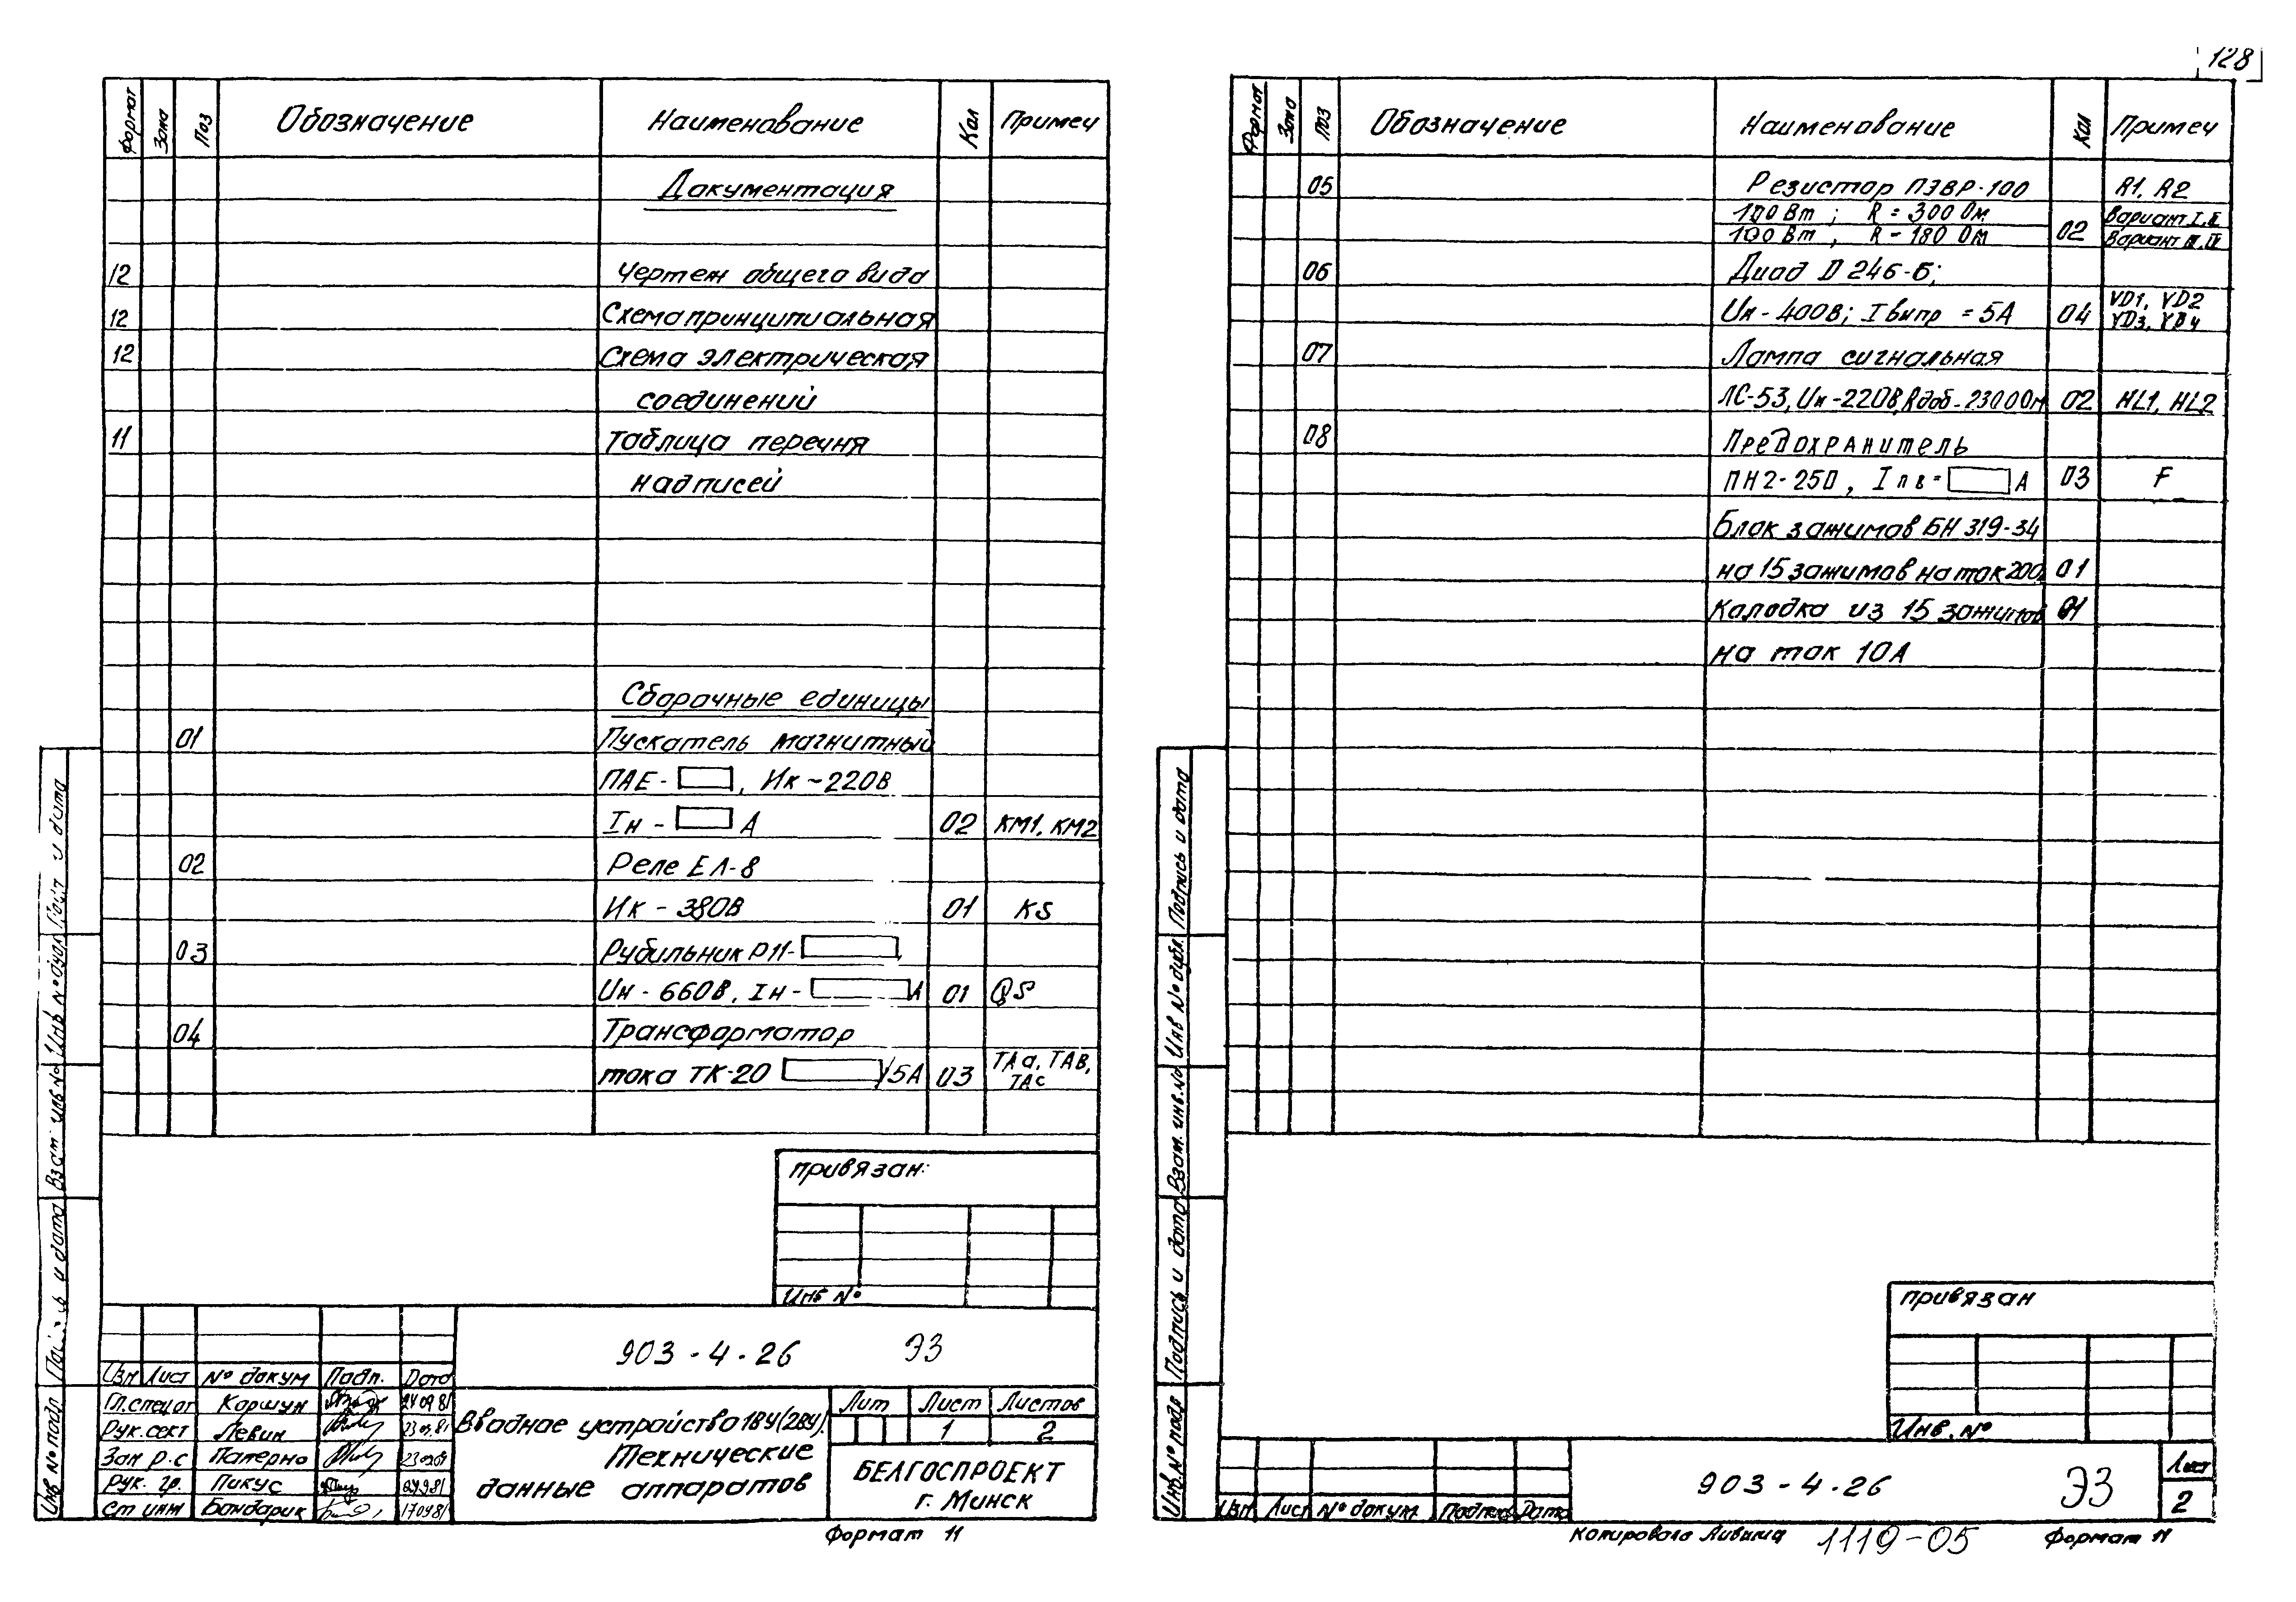 128
Формат Зона Поз Обозначение Наименование Кол Примеч
Документация
12 Чертеж общего вида
12 Схема принципиальная
12 Схема электрическая
соединений
11 Таблица перечня
надписей
Сборочные единицы
01 Пускатель магнитный
ПАЕ- , Ик ~220В
Iн - А 02 КМ1, КМ2
02 Реле ЕЛ-8
Ик - 380В 01 KS
03 Рубильник Р11-
Uн - 660В, Iн - А 01 QS
04 Трансформатор
тока ТК-20 /5А 03 ТАа, ТАВ,
ТАс
привязан:
Инв №
903-4-26 ЭЗ
Изм Лист № докум Подп. Дата
Гл.спецот Коршун 24 09 81
Рук.сект Левин
Зам р.с Паперно
Рук. гр. Пикус
Ст инж Бондарик 17 09 81
Вводное устройство 1ВУ(2ВУ).
Технические
данные аппаратов
Лит Лист Листов
1 2
БЕЛГОСПРОЕКТ
г. Минск
Формат 11
Взам инв №
Инв № подл
Формат Зона Поз Обозначение Наименование Кол Примеч
05 Резистор ПЭВР-100 R1, R2
100 Вт ; R = 300 Ом Вариант I, II
100 Вт , R - 180 Ом 02 Вариант III, IV
06 Диод D 246-Б;
Uн - 400В; I выпр = 5А 04 VD1, VD2
VD3, VD4
07 Лампа сигнальная
ЛС-53, Uн -220В, Rдоб - 2300 Ом 02 HL1, HL2
08 Предохранитель
ПН2-250 , I пв = А 03 F
Блок зажимов БН 319-34
на 15 зажимов на ток 200 01
Колодка из 15 зажимов 01
на ток 10А
привязан
Инв. №
903-4-26 ЭЗ
Лист
2
Изм Лист № докум Подпись Дата
Подпись и дата
Инв № дубл.
Взам. инв. №
Подпись и дата
Инв. № подл
Копировала 1119-05 Формат 11